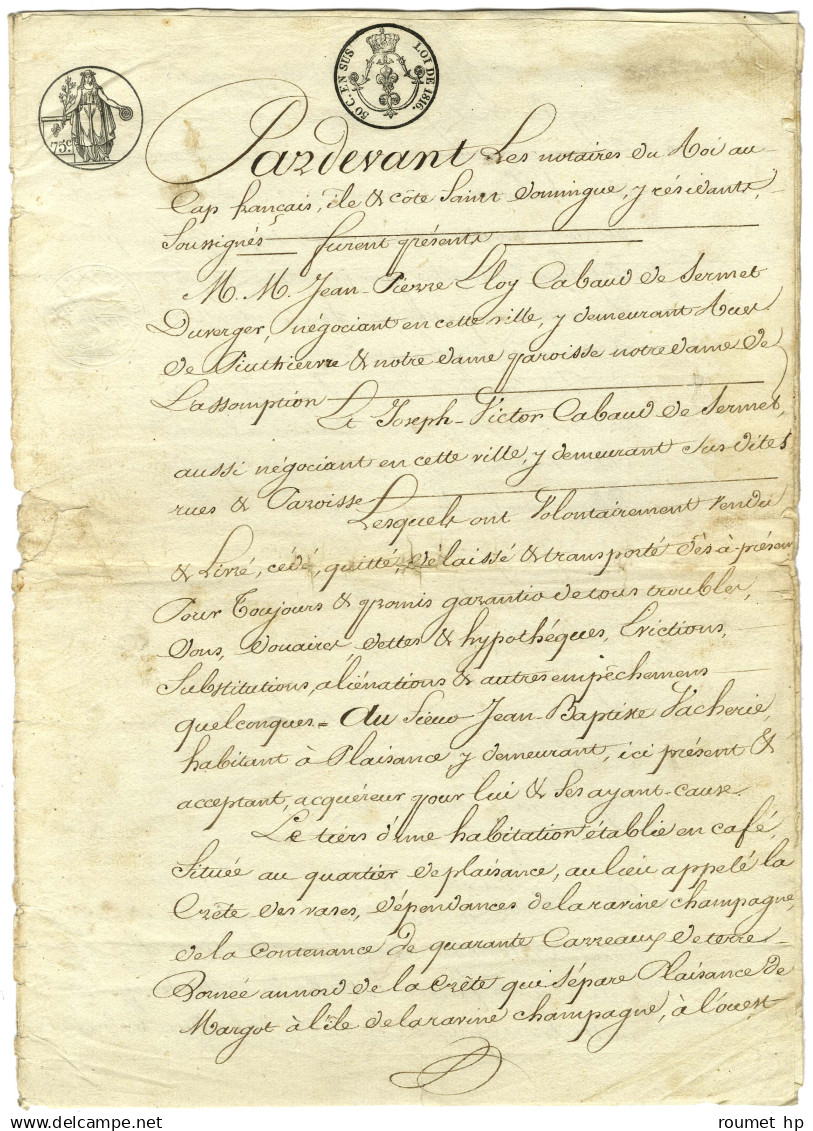 50 C. EN SUS LOI DE 1816.
75c.
Pardevant Les notaires du Roi au
Cap français, île & côte Saint Domingue, y résidants,
Soussignés furent présents
M. M. Jean-Pierre Eloy Cabaud de Sermet
Duverger, négociant en cette ville, y demeurant Rues
de & notre dame paroisse notre dame de
L'assomption Et Joseph-Victor Cabaud de Sermet,
aussi négociant en cette ville, y demeurant Susdites
rues & Paroisse Lesquels ont Volontairement Vendu
& Livré, cédé, quitté, délaissé & transporté dès-à-présent
Pour Toujours & promis garantie de tous troubles,
dons, douaires, dettes & hypothéques, Evictions,
Substitutions, aliénations & autres empêchemens
quelconques = Au Sieur Jean-Baptiste Vacherie,
habitant à Plaisance y demeurant, ici présent &
acceptant, acquéreur pour lui & Ses ayant-cause.
Le tiers d'une habitation établie en café,
Située au quartier de plaisance, au lieu appelé la
Crête des rases, dépendances de la ravine champagne,
de la Contenance de quarante Carreaux de terre
Bornée au nord de la Crête qui Sépare Plaisance de
Margot à l'Est de la ravine champagne, à l'ouest
roumet hp
www.delcampe.net